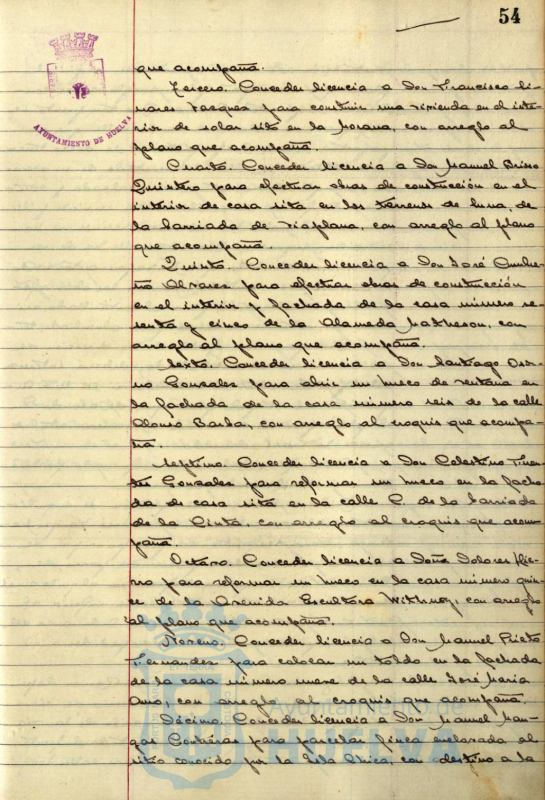 54
AYUNTAMIENTO DE HUELVA
que acompaña.
Tercero. Conceder licencia a Don Francisco Li-
nares Vazquez para construir una vivienda en el inte-
rior de solar sito en la Morana, con arreglo al
plano que acompaña.
Cuarto. Conceder licencia a Don Manuel
Quintero para efectuar obras de construcción en el
interior de casa sita en los terrenos de de
la barriada de Viaplana, con arreglo al plano
que acompaña.
Quinto. Conceder licencia a Don José
Alvarez para efectuar obras de construcción
en el interior y fachada de la casa número se-
senta y cinco de la Alameda Matheson, con
arreglo al plano que acompaña.
Sexto. Conceder licencia a Don Santiago
Gonzalez para abrir un hueco de ventana en
la fachada de la casa número seis de la calle
Alonso Barba, con arreglo al croquis que acompa-
ña.
Septimo. Conceder licencia a Don Celestino
Gonzalez para reformar un hueco en la facha-
da de casa sita en la calle C. de la barriada
de la Cinta, con arreglo al croquis que acom-
paña.
Octavo. Conceder licencia a Doña Dolores Hie-
rro para reformar un hueco en la casa número quin-
ce de la Avenida Escultora Withney, con arreglo
al plano que acompaña.
Noveno. Conceder licencia a Don Manuel Prieto
Fernandez para colocar un toldo en la fachada
de la casa número nueve de la calle José Maria
Amo, con arreglo al croquis que acompaña.
Décimo. Conceder licencia a Don Manuel Man-
gas Contreras para parcelar finca enclavada al
sitio conocido por la Isla Chica, con destino a la
Ayuntamiento de
HUELVA